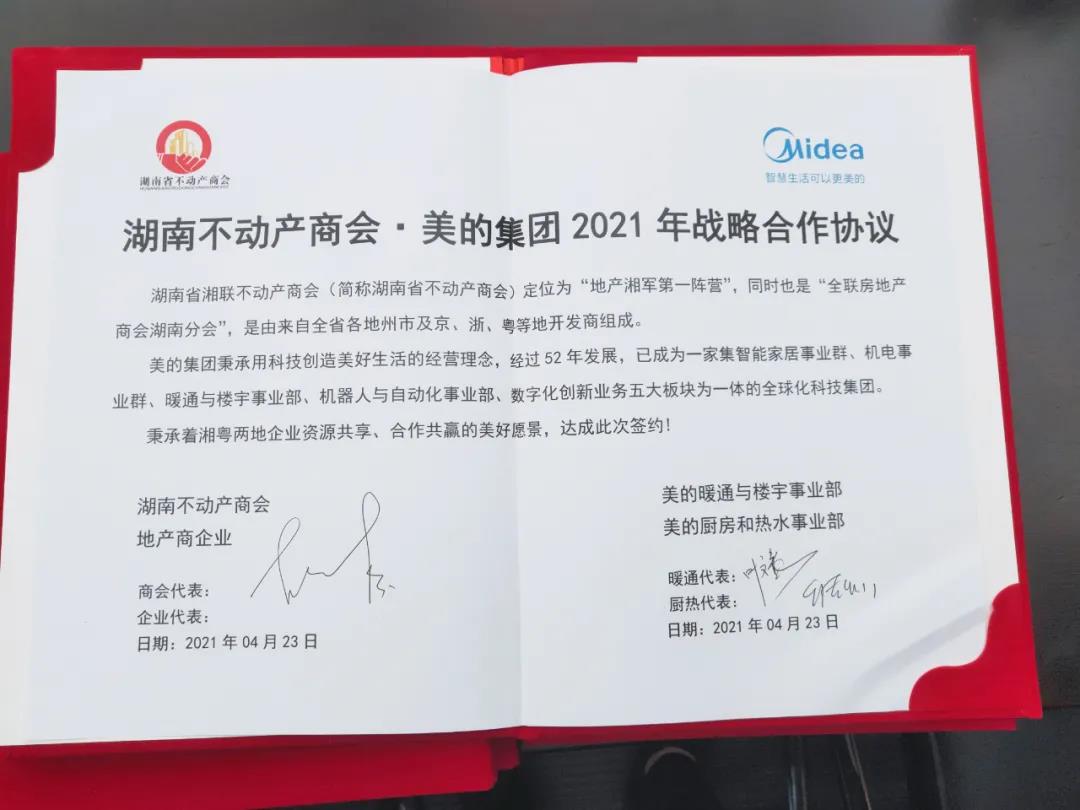 湖南省不动产商会
Midea
智慧生活可以更美的
湖南不动产商会·美的集团 2021 年战略合作协议
湖南省湘联不动产商会（简称湖南省不动产商会）定位为“地产湘军第一阵营”，同时也是“全联房地产
商会湖南分会”，是由来自全省各地州市及京、浙、粤等地开发商组成。
美的集团秉承用科技创造美好生活的经营理念，经过 52 年发展，已成为一家集智能家居事业群、机电事
业群、暖通与楼宇事业部、机器人与自动化事业部、数字化创新业务五大板块为一体的全球化科技集团。
秉承着湘粤两地企业资源共享、合作共赢的美好愿景，达成此次签约！
湖南不动产商会
地产商企业
商会代表：
企业代表：
日期：2021 年 04 月 23 日
美的暖通与楼宇事业部
美的厨房和热水事业部
暖通代表：
厨热代表：
日期：2021 年 04 月 23 日